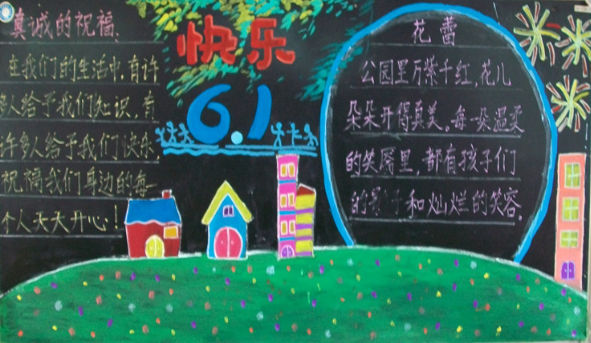 真诚的祝福
在我们的生活中,有许
多人给予我们知识,有
许多人给予我们快乐,
祝福我们身边的每一
个人天天开心!
快乐
6.1
花蕾
公园里万紫千红,花儿
朵朵开得真美。每一朵温柔
的笑靥里,都有孩子们
的影子和灿烂的笑容。